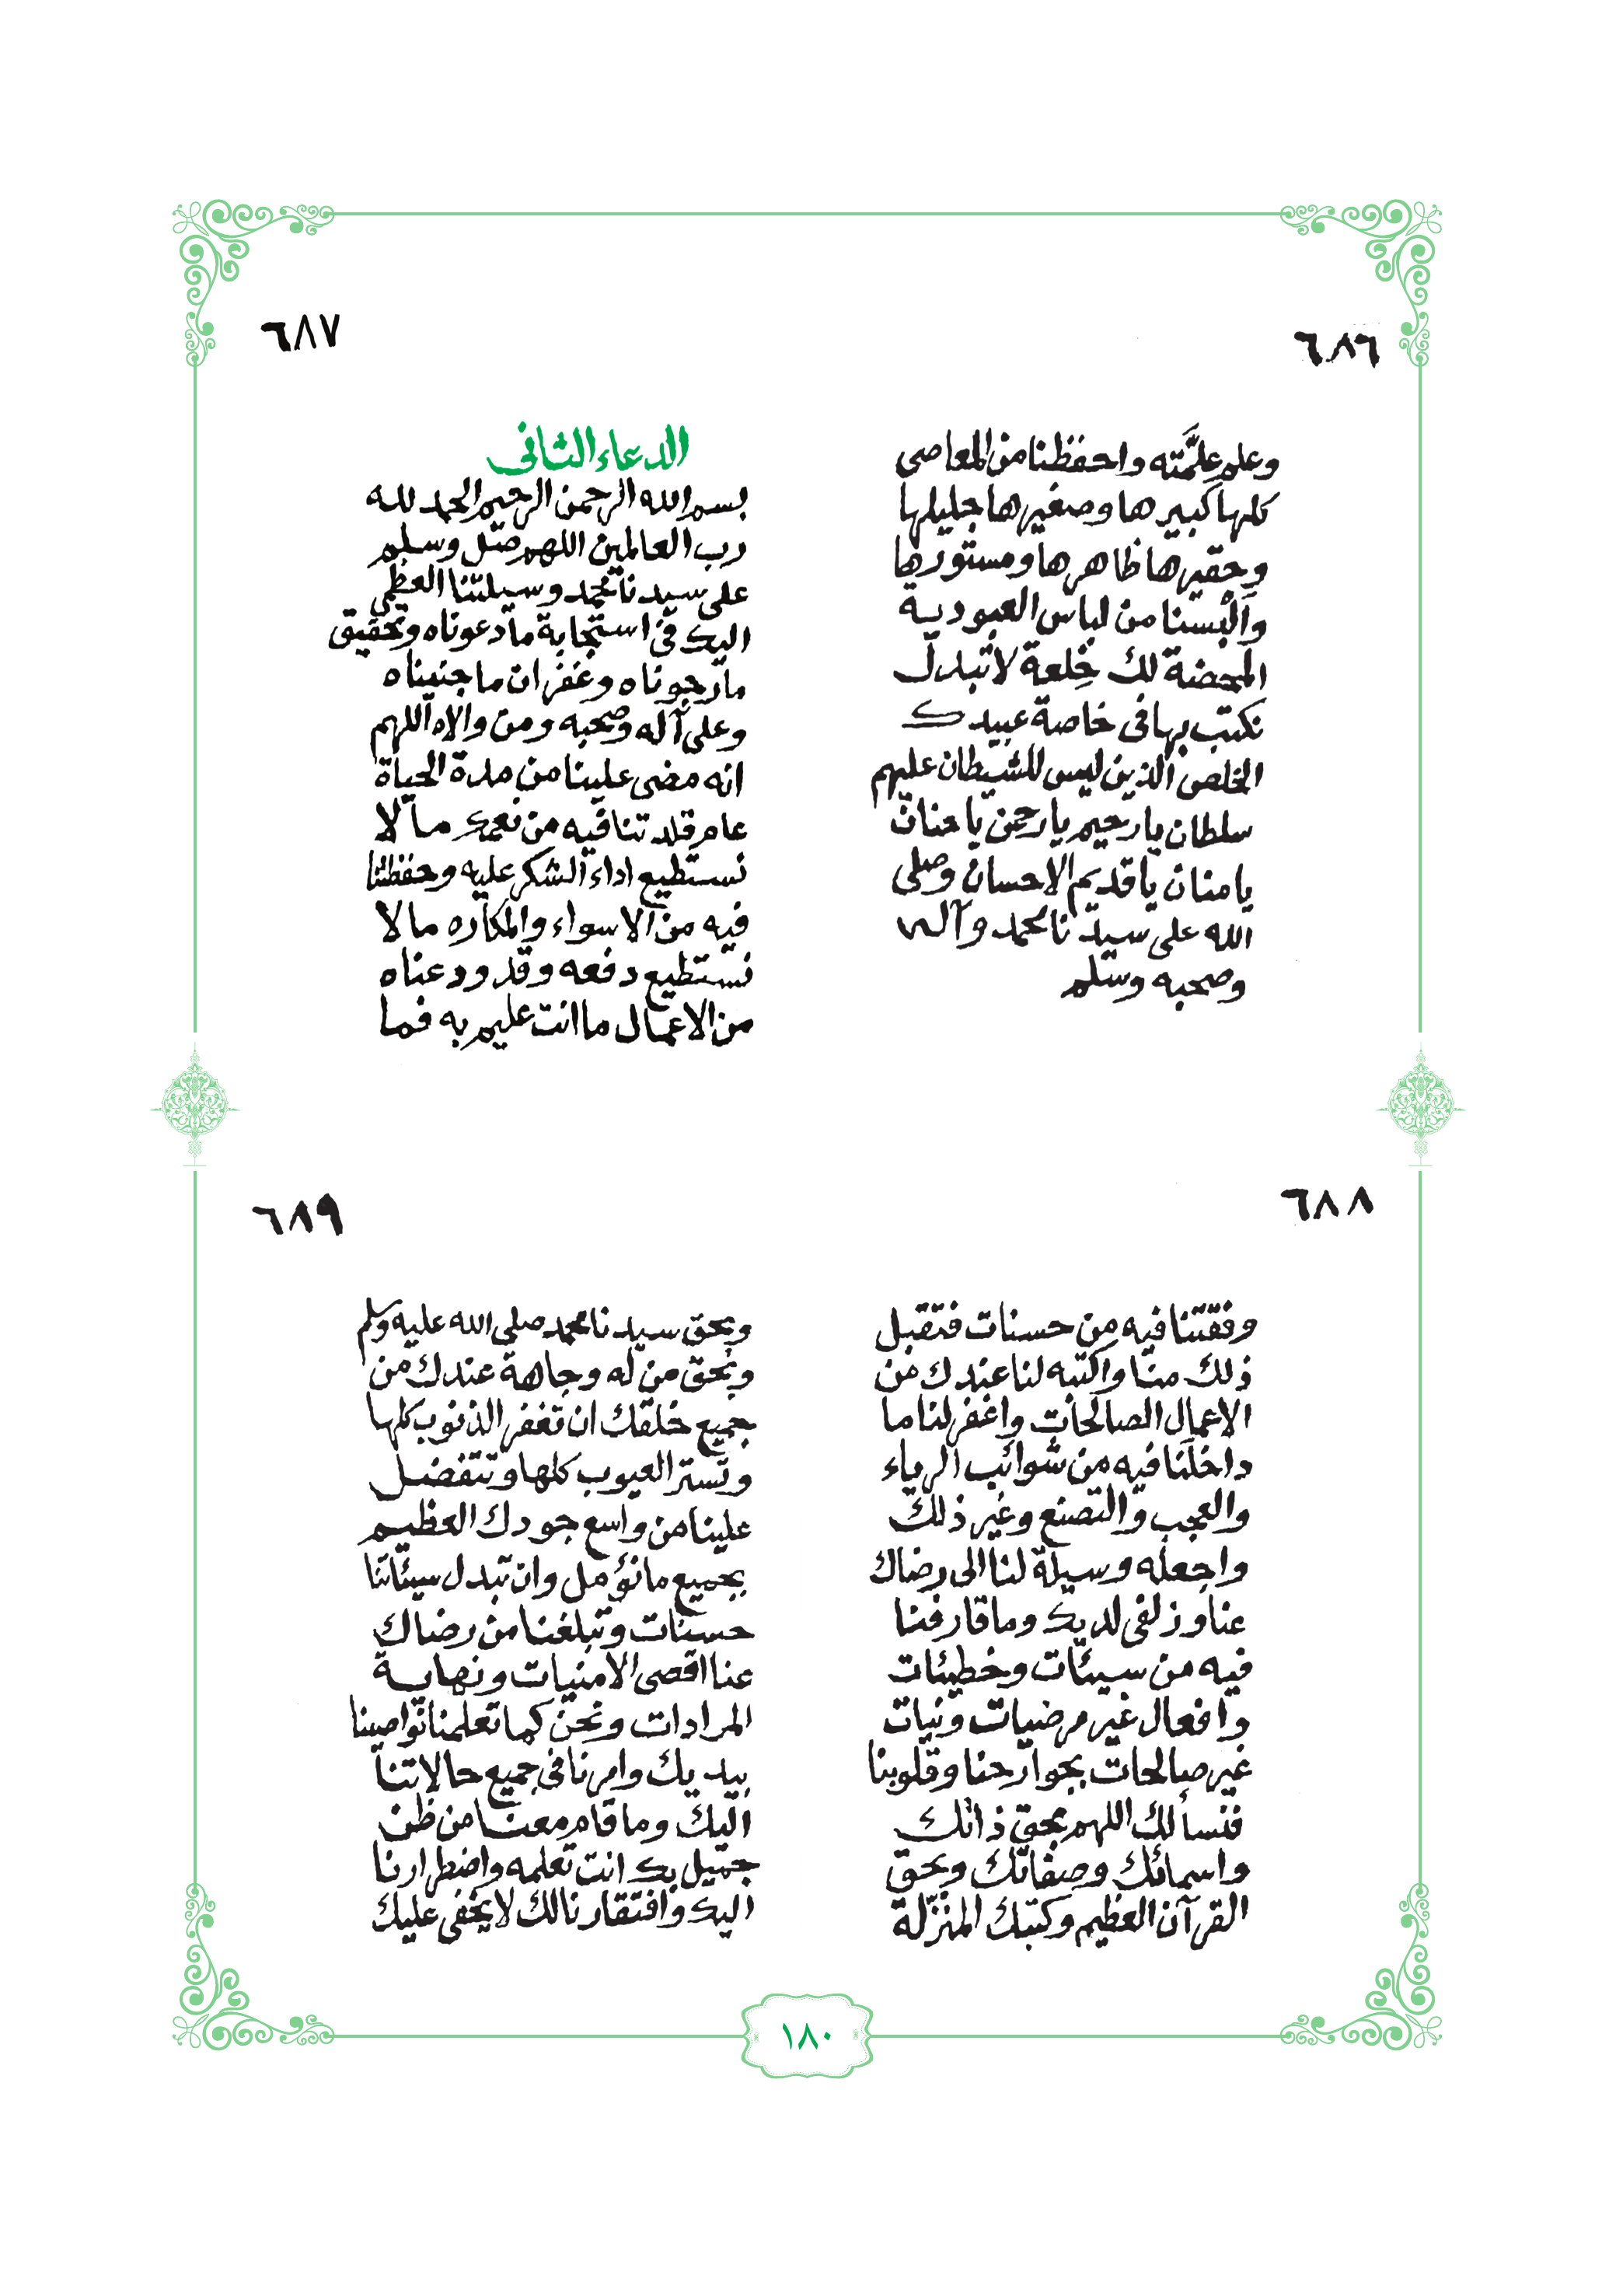 ٦٨٦
وعلم علَّمته واحفظنا من المعاصى
كلها كبيرها وصغيرها جليلها
وحقيرها ظاهرها ومستورها
وأَلْبِسنا من لباس العبودية
المحضة لك خِلعة لا تبدل
نكتب بها فى خاصة عبيدك
الخلص الذين ليس للشيطان عليهم
سلطان يا رحيم يا رحمن يا حنان
يا منان يا قديم الاحسان وصلى
الله على سيدنا محمد وآله
وصحبه وسلم
٦٨٧
الدعاء الثانى
بسم الله الرحمن الرحيم الحمد لله
رب العالمين اللهم صل وسلم
على سيدنا محمد وسيلتنا العظمى
اليك فى استجابة ما دعوناه وتحقيق
ما رجوناه وغفران ما جنيناه
وعلى آله وصحبه ومن والاه اللهم
انه مضى علينا من مدة الحياة
عام قلدتنا فيه من نعمك ما لا
نستطيع اداء الشكر عليه وحفظتنا
فيه من الاسواء والمكاره ما لا
نستطيع دفعه وقد ودعناه
من الاعمال ما انت عليم به فما
٦٨٨
وفقتنا فيه من حسنات فتقبل
ذلك منا واكتبه لنا عندك من
الاعمال الصالحات واغفر لنا ما
داخلنا فيه من شوائب الرياء
والعجب والتصنع وغير ذلك
واجعله وسيلة لنا الى رضاك
عنا وزلفى لديك وما قارفنا
فيه من سيئات وخطيئات
وافعال غير مرضيات ونيات
غير صالحات بجوارحنا وقلوبنا
فنسألك اللهم بحق ذاتك
واسمائك وصفاتك وبحق
القرآن العظيم وكتبك المنزّلة
٦٨٩
وبحق سيدنا محمد صلى الله عليه وسلم
وبحق من له وجاهة عندك من
جميع خلقك ان تغفر الذنوب كلها
وتستر العيوب كلها وتتفضل
علينا من واسع جودك العظيم
بجميع ما نؤمل وان تبدل سيئاتنا
حسنات وتبلغنا من رضاك
عنا اقصى الامنيات ونهاية
المرادات ونحن كما تعلمنا نواصينا
بيديك وامرنا فى جميع حالاتنا
اليك وما قام معنا من ظن
جميل بك انت تعلمه واضطرارنا
اليك وافتقارنا لك لا يخفى عليك
١٨٠